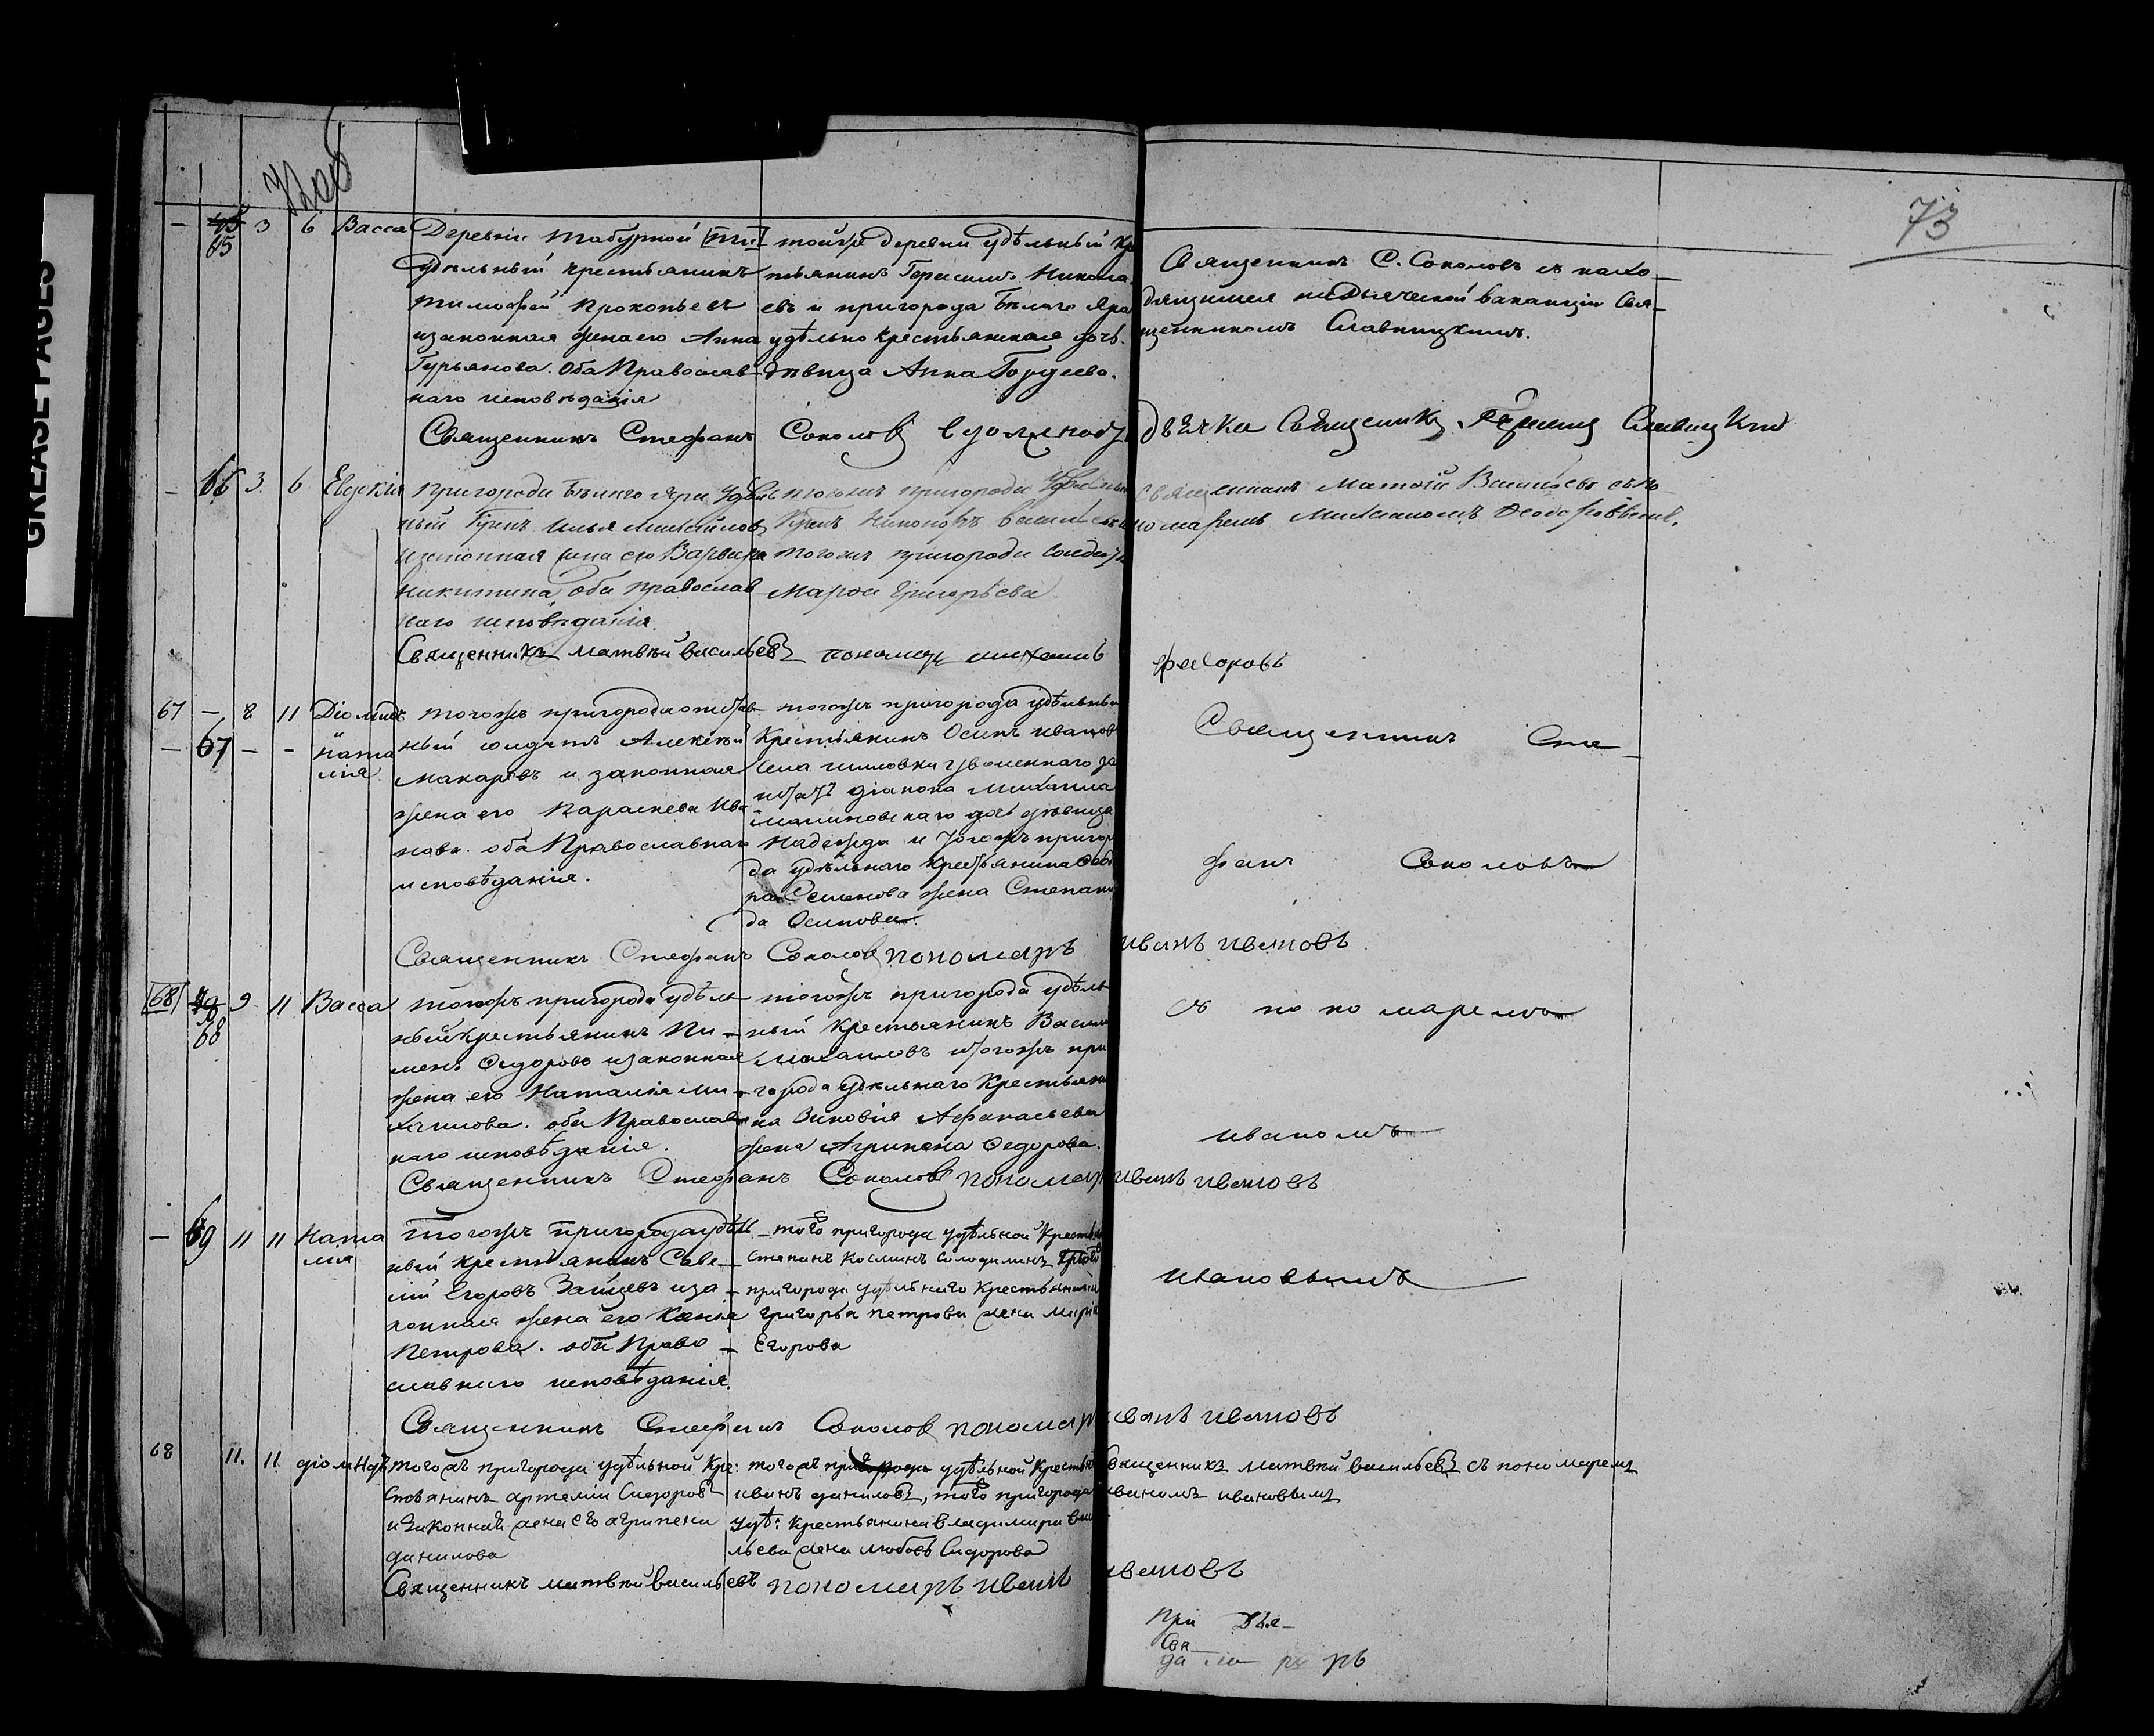 GREASE PAGES
73
— 65 3 6 Васса Деревни Табурной
удѣльный крестьянинъ
Тимофей Прокопьевъ
и законная жена его Анна
Гурьянова. Оба Православ-
наго исповѣданія
тойже деревни удѣльный Кре
тьянинъ Герасимъ Никола
евъ и пригорода Бѣлаго Яра
удѣльно крестьянская дочь
дѣвица Анна Гордеева.
Священникъ С. Соколовъ съ нахо-
дящимся на дьяческой вакансіи Свя-
щенникомъ Славницкимъ.
Священникъ Стефанъ Соколовъ в должност дьячка Священникъ Славницкій
— 66 3 6 Евдокія пригорода Бѣлаго Яра Удѣль
ный Крест. Илья Михайловъ
и законная жена его Варвара
Никитина, оба православ
наго исповѣданія.
тогожъ пригорода Удѣльный
Крест. Никоноръ Васильевъ и
тогожъ пригорода солдатка
Марѳа Григорьева
Священникъ Матвій Васильевъ съ по
номаремъ Михаиломъ Ѳеодоровымъ.
Священникъ матвѣй васильевъ пономарь михаилъ федоровъ
67 — 8 11 Діомидъ
— 67 — — Ната
лія
тогожъ пригорода отстав
ный солдатъ Алексѣй
Макаровъ и законная
жена его Параскева Ива
нова. оба Православнаго
исповѣданія.
тогожъ пригорода удѣльный
Крестьянинъ Осипъ Ивановъ
села Шиловки уволеннаго за
штатъ діакона Михаила
Малиновскаго дочь дѣвица
Надежда и тогожъ пригоро
да удѣльнаго Крестьянина Ѳедо
ра Семенова жена Степани
да Осипова.
Священникъ Сте-
фанъ Соколовъ
Священникъ Стефанъ Соколовъ пономарь иванъ ивановъ
68 68 9 11 Васса тогожъ пригорода удѣль-
ный крестьянинъ Пи-
менъ Ѳедоровъ и законная
жена его Наталія Ми-
хаилова. оба Православ
наго исповѣданія.
тогожъ пригорода удѣль
ный крестьянинъ Васили
Михаиловъ и тогожъ при
города удѣльнаго Крестьяни
на Зиновія Афанасьева
жена Агрипена Ѳедорова.
съ пономаремъ
иваномъ
Священникъ Стефанъ Соколовъ пономарь иванъ ивановъ
— 69 11 11 Ната
лія
тогожъ пригорода удѣль
ный крестьянинъ Саве-
лій Егоровъ Зайцевъ и за-
конная жена его Ксенія
Петрова. оба Право-
славнаго исповѣданія.
того пригорода удѣльной Крестья
степанъ Косминъ Солодилинъ
пригорода удѣльнаго Крестьянина
григорья петрова жена марія
Егорова
ивановымъ
Священникъ Стефанъ Соколовъ пономарь иванъ ивановъ
68 11. 11 діомидъ тогожъ пригорода удѣльной Кре:
стьянинъ артемій Сидоровъ
и законная жена его агрипена
данилова
тогожъ пригорода удѣльной Крестья
иванъ даниловъ, того пригорода
удѣ: крестьянина владимира васи
льева жена любовь Сидорова
Священникъ матвѣй васильевъ съ пономаремъ
иваномъ ивановымъ
Священникъ матвѣй васильевъ пономарь иванъ ивановъ
при
Свя
да рь